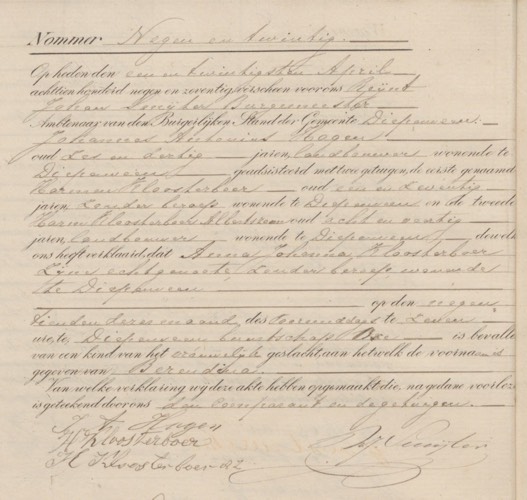 Nommer Negen en twintig.
Op heden den een en twintigsten April
achttienhonderd negen en zeventig, verscheen voor ons Reijnt
Johan Burgemeester
Ambtenaar van den Burgerlijken Stand der Gemeente Diepenveen
Johannes Antonius Hagen
oud zes en dertig jaren, landbouwer wonende te
Diepenveen geadsisteerd met twee getuigen, de eerste genaamd
Harmen Kloosterboer oud een en zeventig
jaren, zonder beroep wonende te Diepenveen en de tweede
Harm Kloosterboer Albertszoon oud acht en veertig
jaren, landbouwer wonende te Diepenveen dewelke
ons heeft verklaard, dat Anna Johanna Kloosterboer
zijne echtgenoote, zonder beroep, wonende
te Diepenveen
op den negen
tienden dezer maand, des voormiddags te zeven
ure, te Diepenveen buurtschap is bevallen
van een kind van het vrouwelijk geslacht, aan hetwelk de voornaam is
gegeven van Berendina
Van welke verklaring wij deze akte hebben opgemaakt die, na gedane voorlezing
is geteekend door ons den comparant en de getuigen.
J. A. Hagen
H Kloosterboer
H Kloosterboer Az